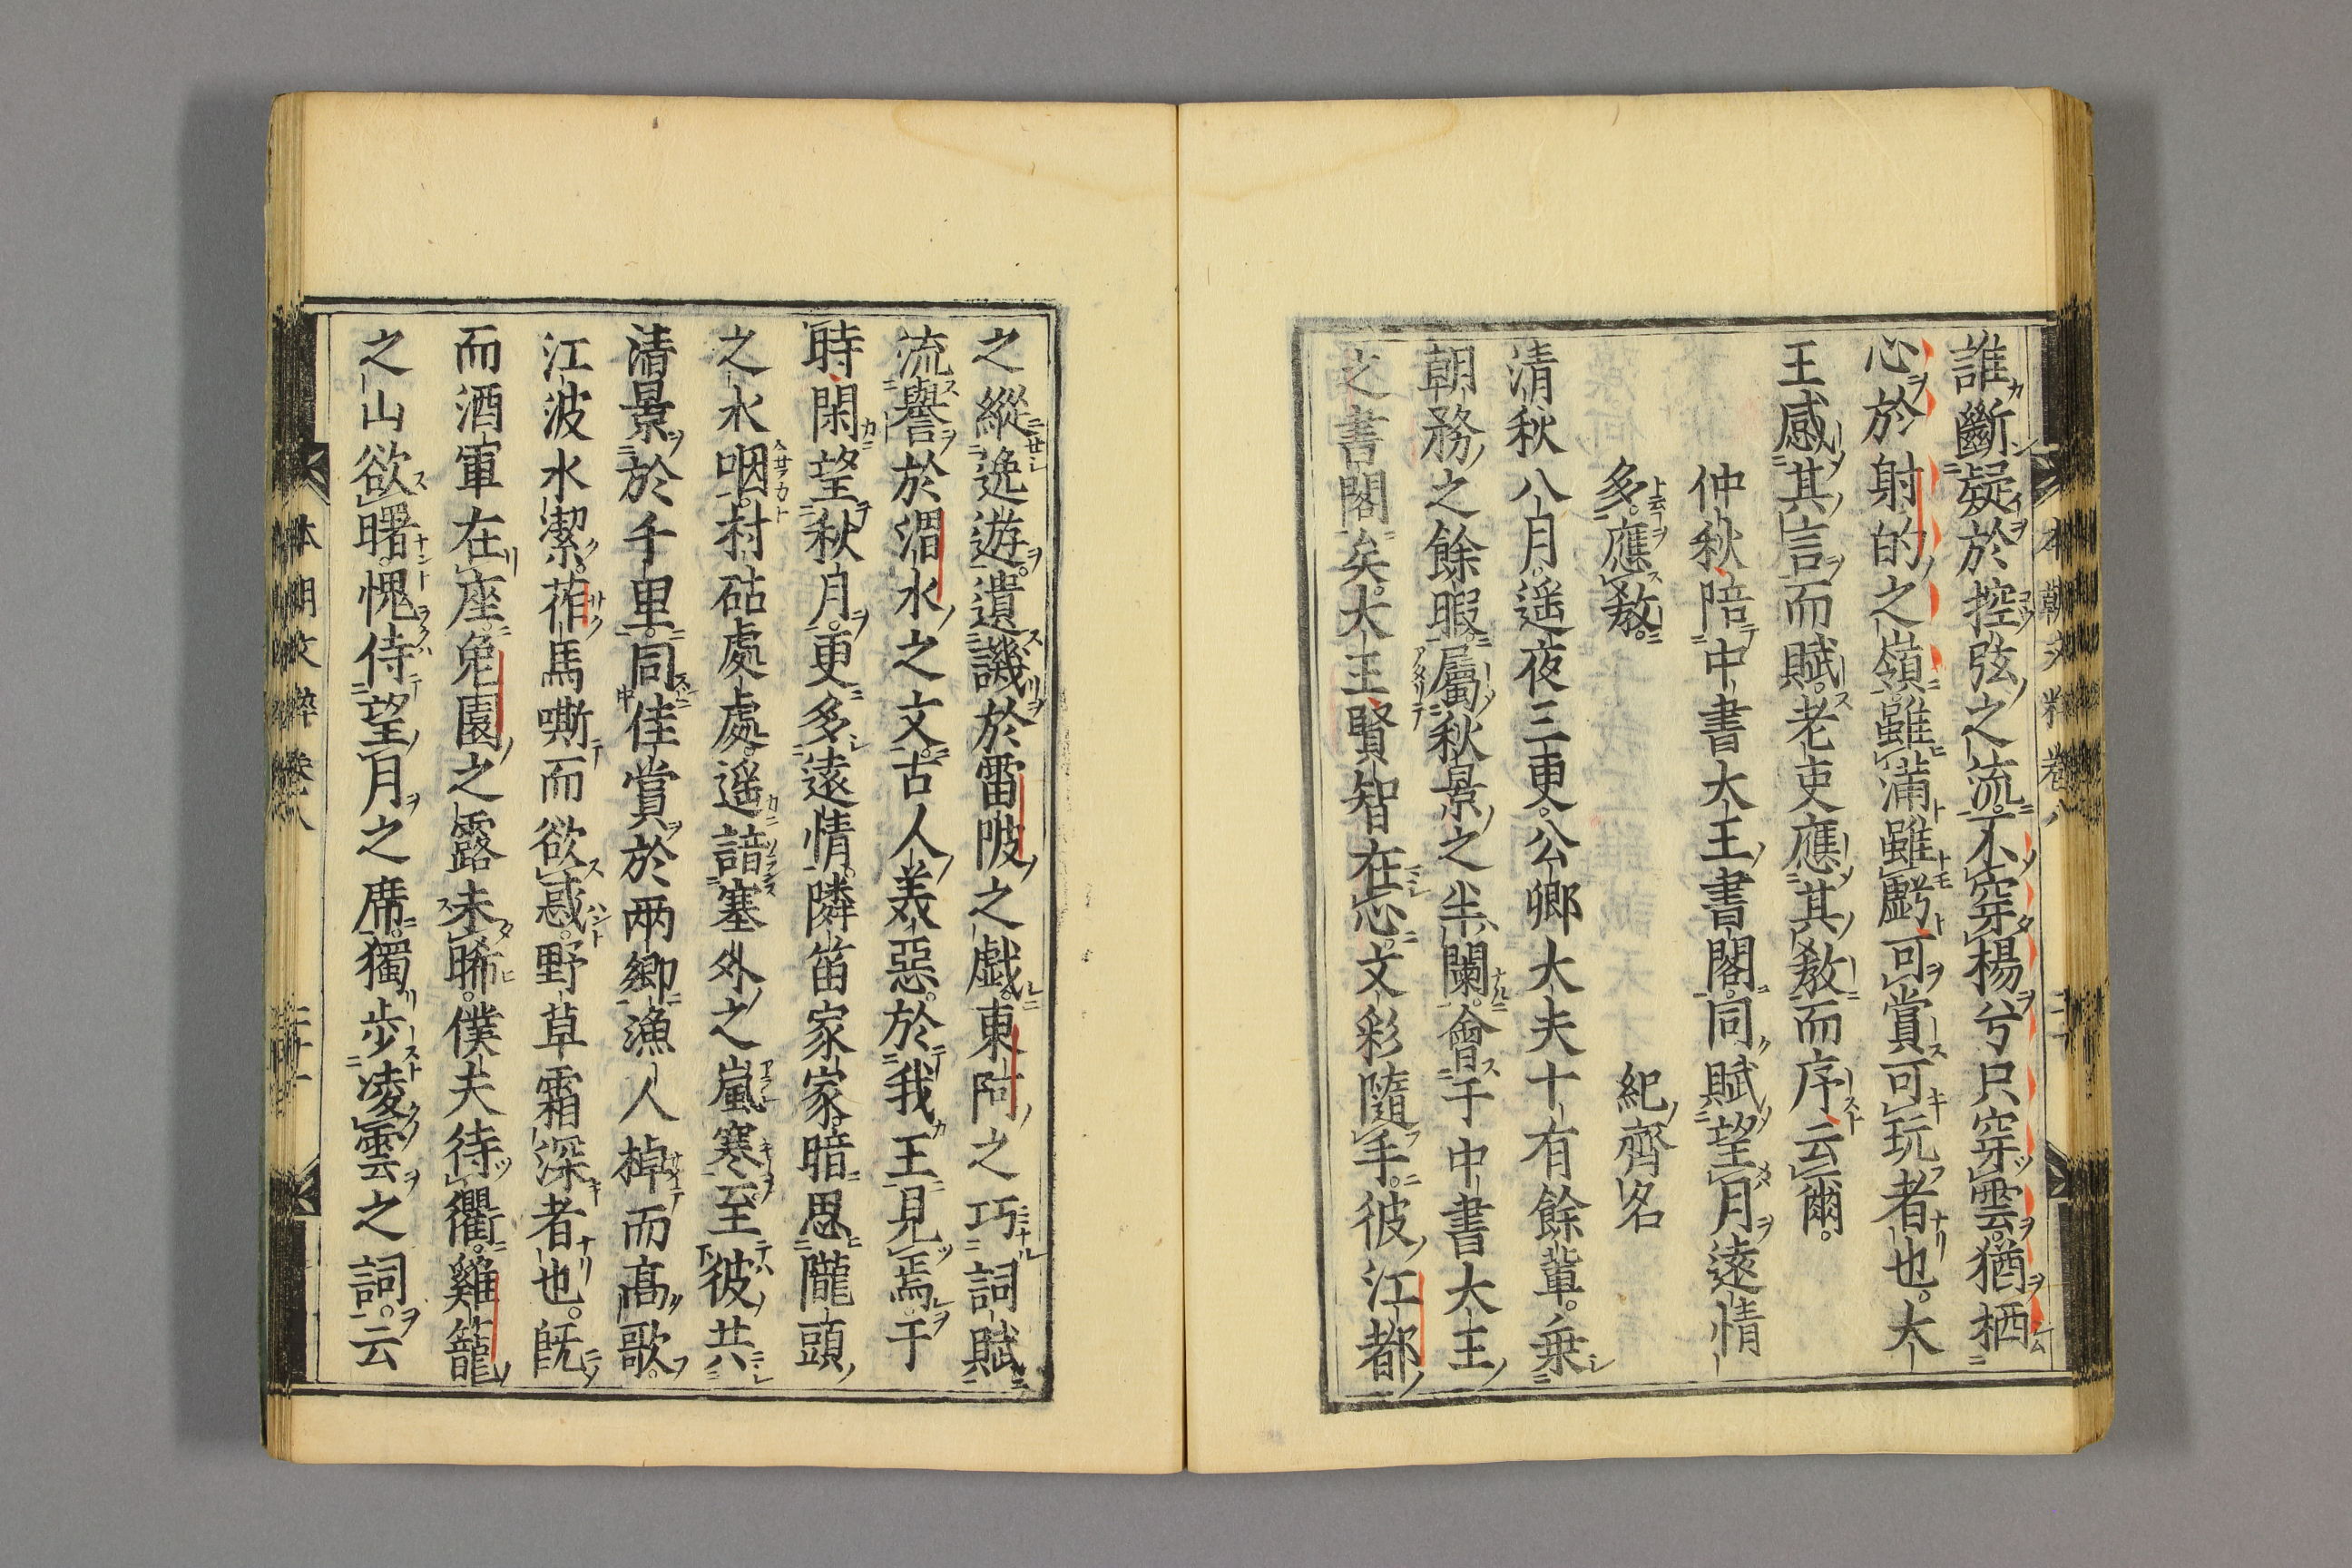 誰斷疑於控弦之流。不穿楊兮只穿雲。猶栖
心於射的之嶺。雖滿雖虧可賞可玩者也。大
王感其言而賦。老吏應其教而序云爾。
仲秋陪中書大王書閣。同賦望月遠情
多。應教。 紀齊名
清秋八月。遥夜三更。公卿大夫十有餘輩。乗
朝務之餘暇。屬秋景之半闌。會于中書大王
之書閣矣。大王賢智在心。文彩隨手。彼江都
之縱逸遊。遺譏於雷陂之戯。東阿之巧詞賦
流譽於淄水之文。古人美惡。於我王見焉。于
時閑望秋月。更多遠情。隣笛家家。暗思隴頭
之水咽。村砧處處。遥諳塞外之嵐寒。至彼共
清景於千里。同佳賞於兩鄉。漁人棹而高歌。
江波水潔。莋馬嘶而欲惑。野草霜深者也。既
而酒軍在座。兔園之露未晞。僕夫待衢。雞籠
之山欲曙。愧侍望月之席。獨步凌雲之詞。云
本朝文粹卷八
二十一